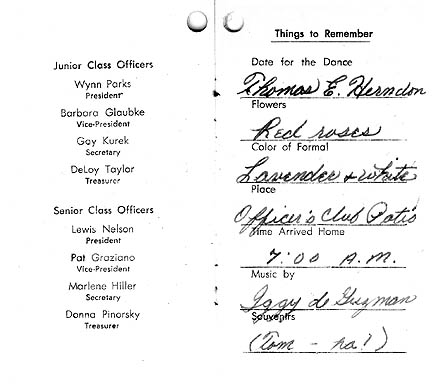 Junior Class Officers
Wynn Parks
President
Barbara Glaubke
Vice-President
Gay Kurek
Secretary
DeLoy Taylor
Treasurer
Senior Class Officers
Lewis Nelson
President
Pat Graziano
Vice-President
Marlene Hiller
Secretary
Donna Pinorsky
Treasurer
Things to Remember
Date for the Dance
Thomas E. Herndon
Flowers
Red roses
Color of Formal
Lavender & white
Place
Officer's Club Patio
Time Arrived Home
7:00 A.M.
Music by
Iggy de Guzman
Souvenirs
(Tom - ha!)